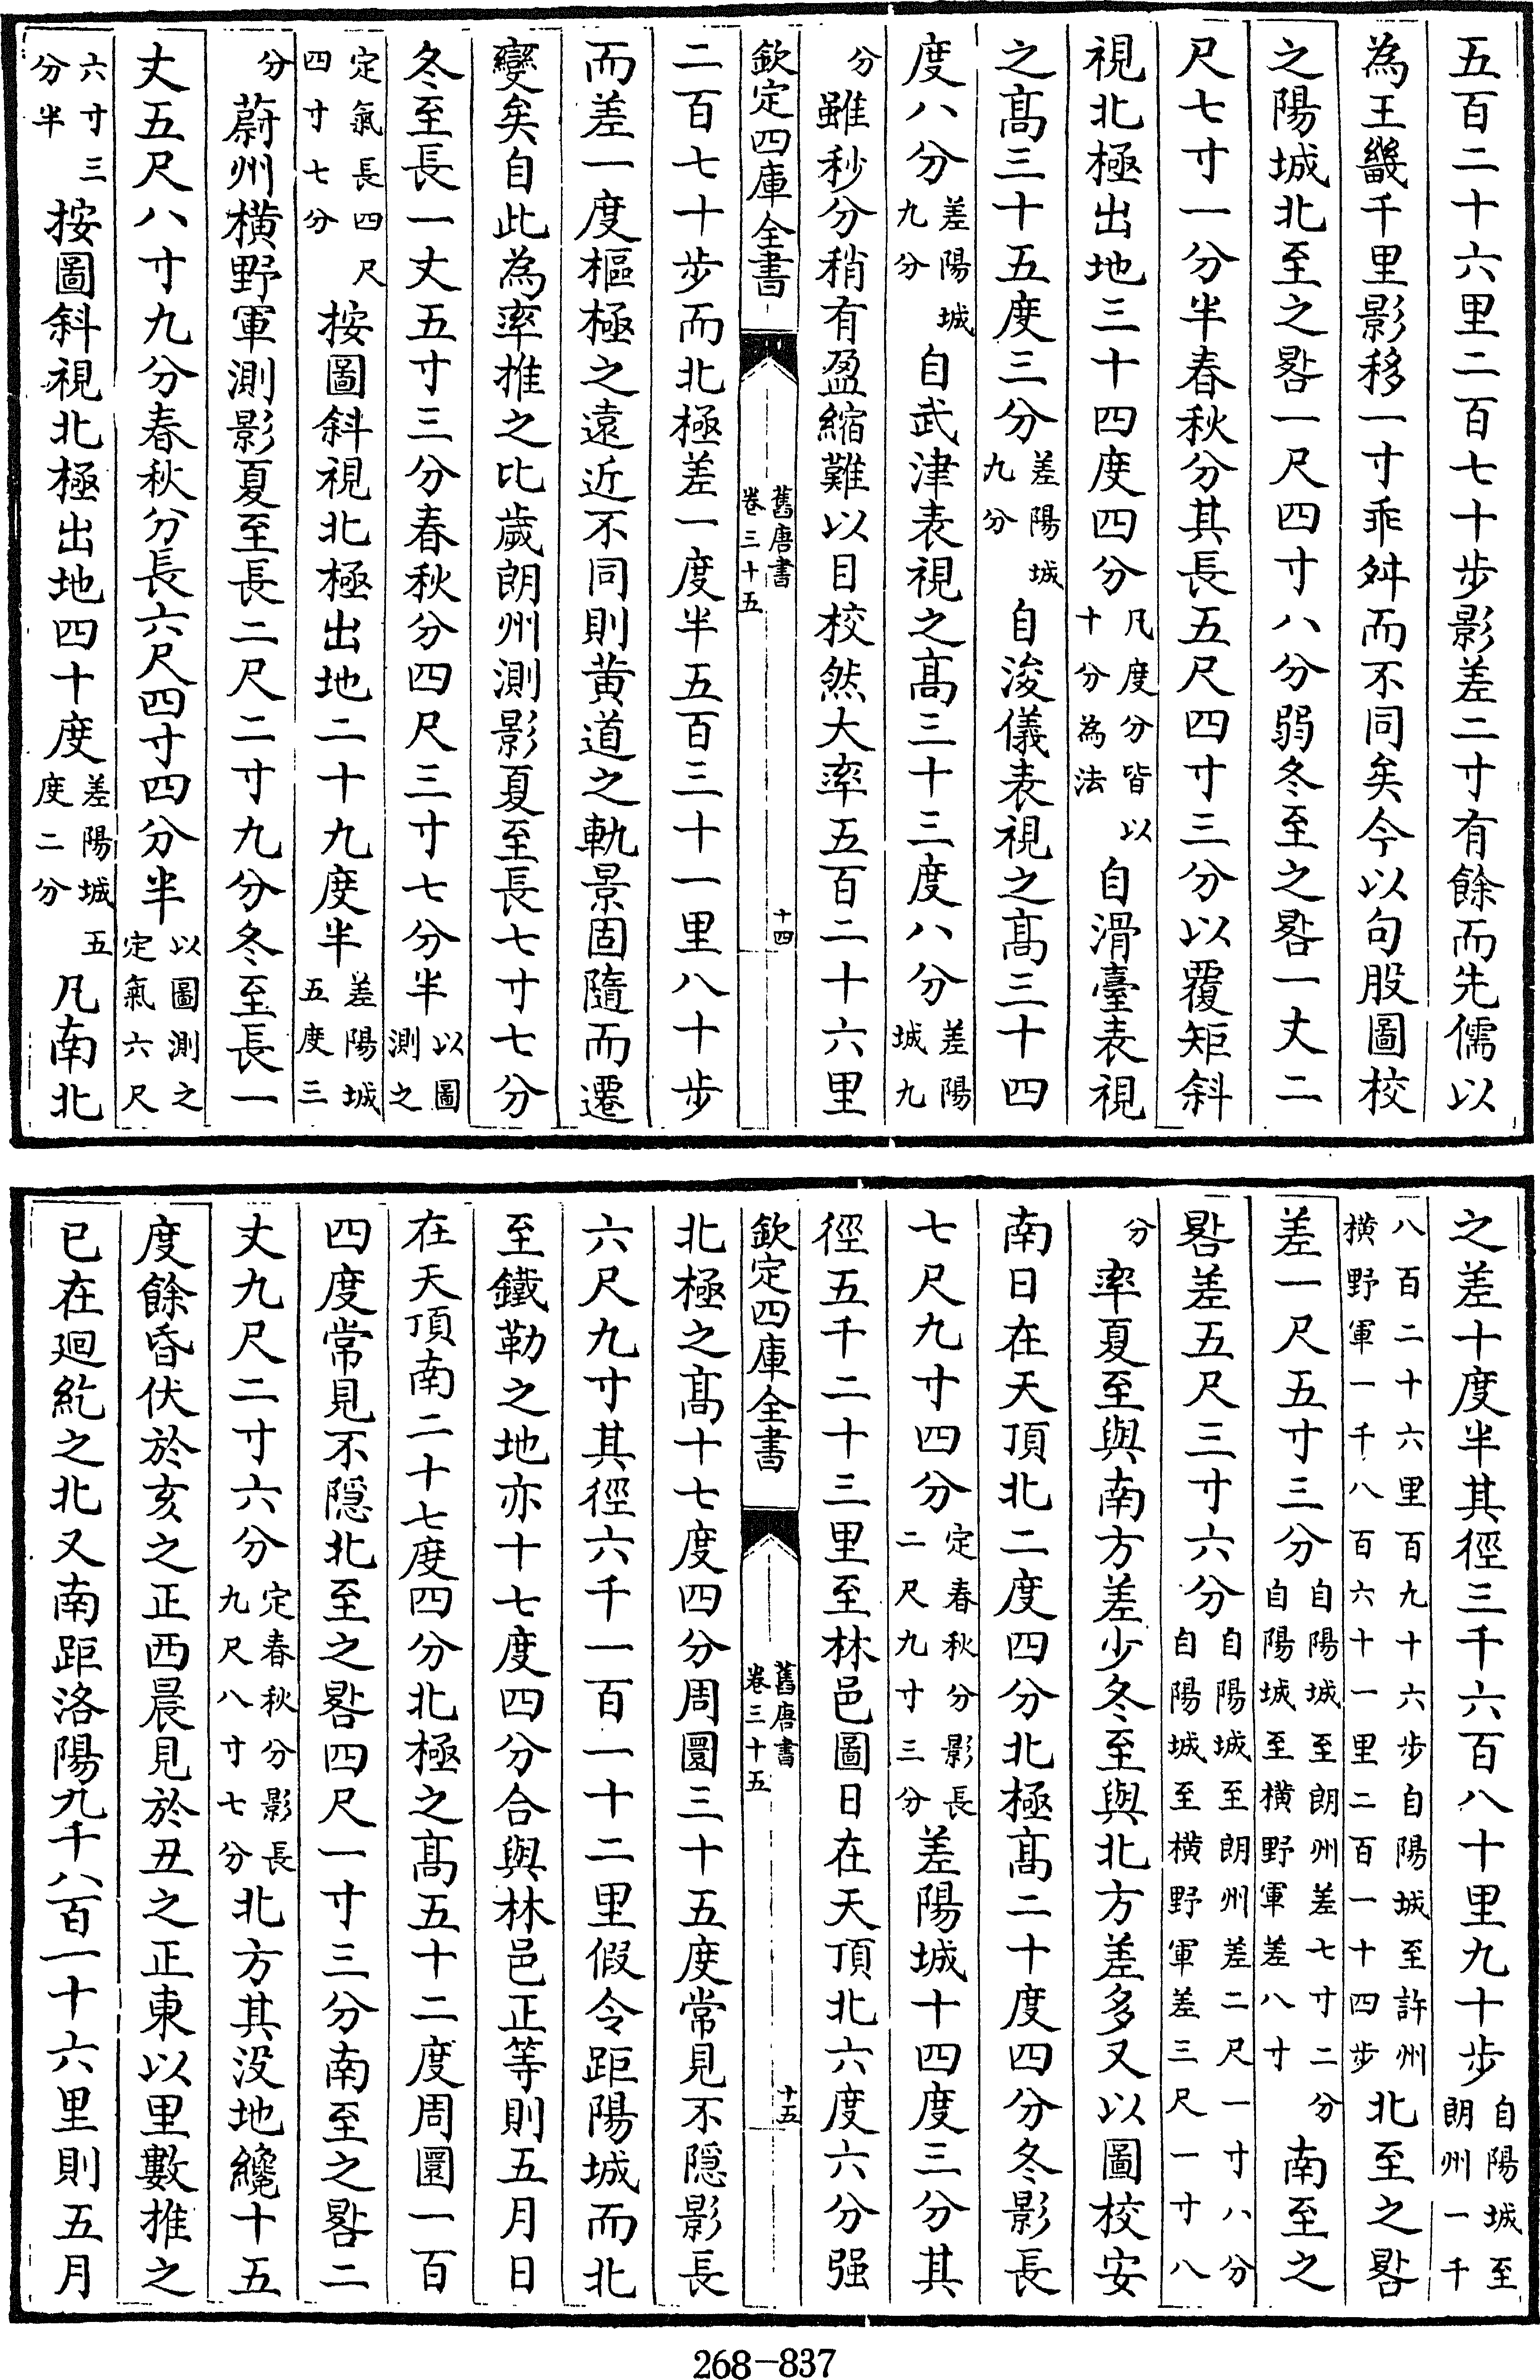 五百二十六里二百七十步影差二寸有餘而先儒以
為王畿千里影移一寸乖舛而不同矣今以句股圖校
之陽城北至之晷一尺四寸八分弱冬至之晷一丈二
尺七寸一分半春秋分其長五尺四寸三分以覆矩斜
視北極出地三十四度四分凡度分皆以十分為法自滑臺表視
之高三十五度三分差陽城九分自浚儀表視之高三十四
度八分差陽城九分自武津表視之高三十三度八分差陽城九
分雖秒分稍有盈縮難以目校然大率五百二十六里
欽定四庫全書 舊唐書卷三十五 十四
二百七十步而北極差一度半五百三十一里八十步
而差一度樞極之遠近不同則黃道之軌景固隨而遷
變矣自此為率推之比歲朗州測影夏至長七寸七分
冬至長一丈五寸三分春秋分四尺三寸七分半以圖測之
定氣長四尺四寸七分按圖斜視北極出地二十九度半差陽城五度三
分蔚州橫野軍測影夏至長二尺二寸九分冬至長一
丈五尺八寸九分春秋分長六尺四寸四分半以圖測之定氣六尺
六寸三分半按圖斜視北極出地四十度差陽城五度二分凡南北
之差十度半其徑三千六百八十里九十步自陽城至朗州一千
八百二十六里百九十六步自陽城至許州橫野軍一千八百六十一里二百一十四步北至之晷
差一尺五寸三分自陽城至朗州差七寸二分自陽城至橫野軍差八寸南至之
晷差五尺三寸六分自陽城至朗州差二尺一寸八分自陽城至橫野軍差三尺一寸八
分率夏至與南方差少冬至與北方差多又以圖校安
南日在天頂北二度四分北極高二十度四分冬影長
七尺九寸四分定春秋分影長二尺九寸三分差陽城十四度三分其
徑五千二十三里至林邑圖日在天頂北六度六分强
欽定四庫全書 舊唐書卷三十五 十五
北極之高十七度四分周圜三十五度常見不隱影長
六尺九寸其徑六千一百一十二里假令距陽城而北
至鐵勒之地亦十七度四分合與林邑正等則五月日
在天頂南二十七度四分北極之高五十二度周圜一百
四度常見不隱北至之晷四尺一寸三分南至之晷二
丈九尺二寸六分定春秋分影長九尺八寸七分北方其沒地纔十五
度餘昏伏於亥之正西晨見於丑之正東以里數推之
已在廻紇之北又南距洛陽九千八百一十六里則五月
268-837